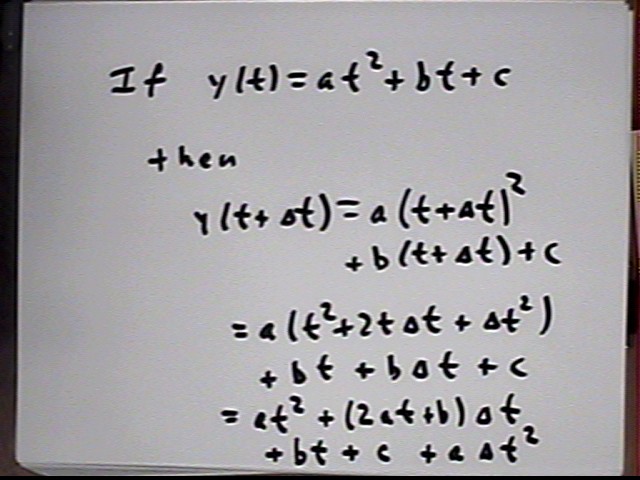 If y(t)=at²+bt+c
then
y(t+Δt)=a(t+Δt)²
+b(t+Δt)+c
=a(t²+2tΔt+Δt²)
+bt+bΔt+c
=at²+(2at+b)Δt
+bt+c+aΔt²